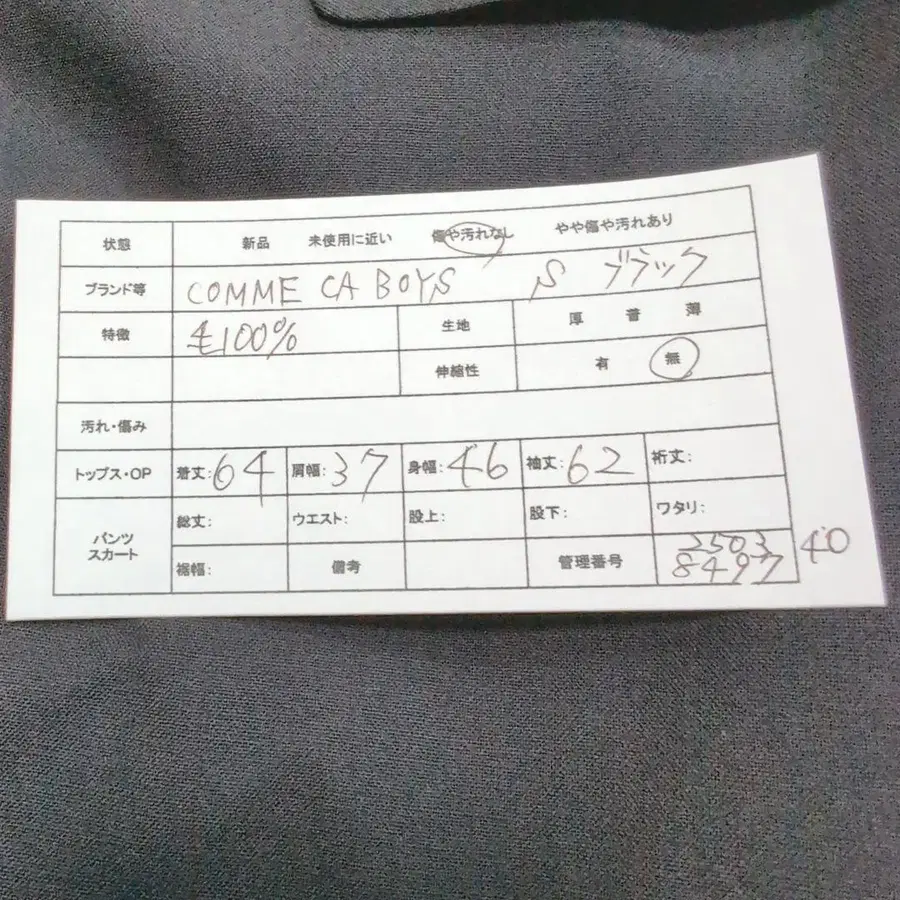 状態 新品 未使用に近い 傷や汚れなし やや傷や汚れあり
ブランド等 COMME CA BOYS S ブラック
特徴 毛100% 生地 厚 普 薄
伸縮性 有 無
汚れ・傷み
トップス・OP 着丈:64 肩幅:37 身幅:46 袖丈:62 裄丈:
パンツ スカート 総丈: ウエスト: 股上: 股下: ワタリ:
裾幅: 備考 管理番号 2503 8497 40